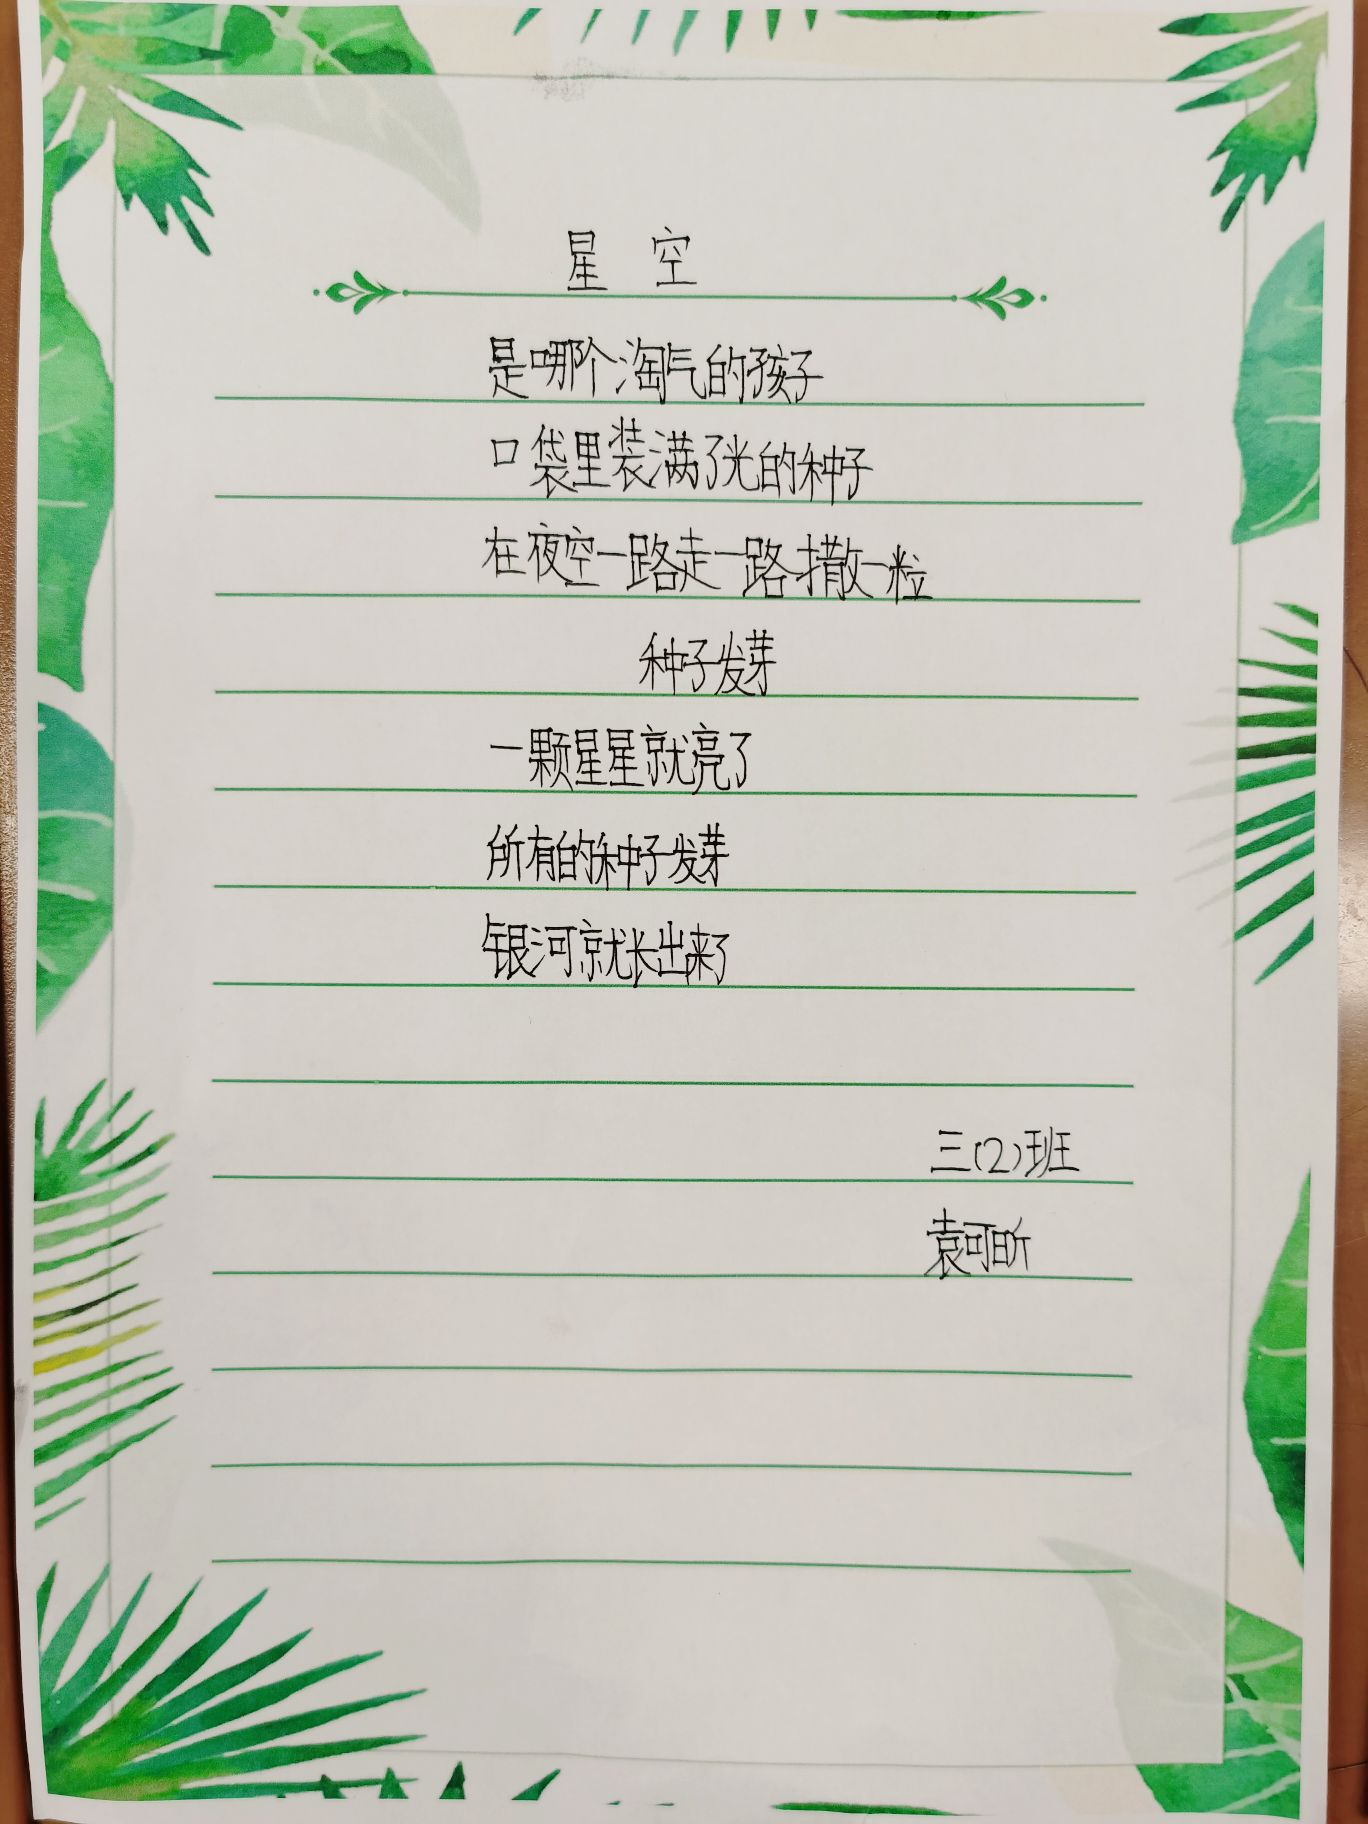 星 空
是哪个淘气的孩子
口袋里装满了光的种子
在夜空一路走一路撒一粒
种子发芽
一颗星星就亮了
所有的种子发芽
银河就长出来了
三(2)班
袁可昕